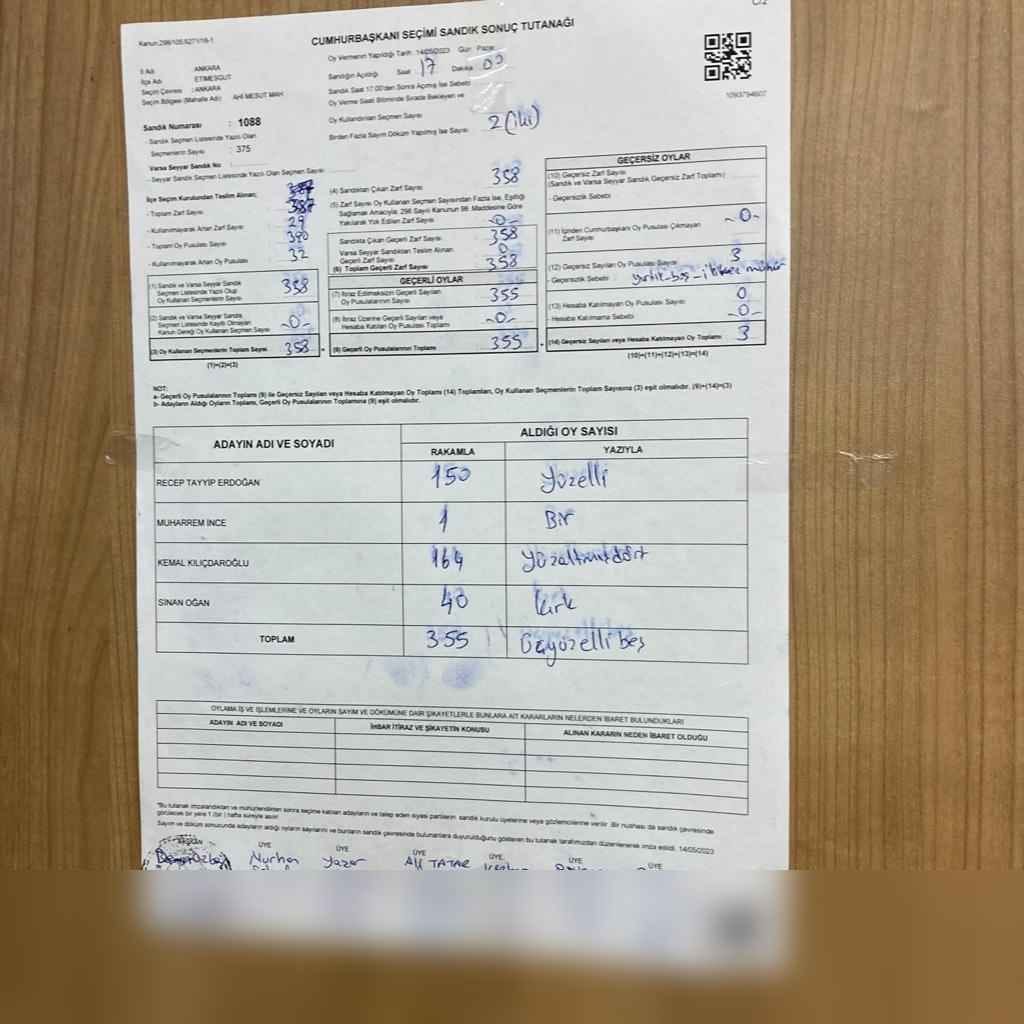 C/2
Kanun:298/105.6271/16-1
CUMHURBAŞKANI SEÇİMİ SANDIK SONUÇ TUTANAĞI
Oy Vermenin Yapıldığı Tarih: 14/05/2023 Gün: Pazar
İl Adı : ANKARA
İlçe Adı : ETİMESGUT
Seçim Çevresi : ANKARA
Seçim Bölgesi (Mahalle Adı) : AHİ MESUT MAH
Sandığın Açıldığı Saat 17 Dakika 00
Sandık Saat 17:00'den Sonra Açılmış İse Sebebi
Oy Verme Saati Bitiminde Sırada Bekleyen ve
Oy Kullandırılan Seçmen Sayısı
Birden Fazla Sayım Döküm Yapılmış İse Sayısı : 2 (iki)
1093794607
Sandık Numarası : 1088
- Sandık Seçmen Listesinde Yazılı Olan
Seçmenlerin Sayısı : 375
Varsa Seyyar Sandık No :
- Seyyar Sandık Seçmen Listesinde Yazılı Olan Seçmen Sayısı:
İlçe Seçim Kurulundan Teslim Alınan;
- Toplam Zarf Sayısı 387
- Kullanılmayarak Artan Zarf Sayısı 29
- Toplam Oy Pusulası Sayısı 390
- Kullanılmayarak Artan Oy Pusulası 32
(1) Sandık ve Varsa Seyyar Sandık
Seçmen Listesinde Yazılı Olup
Oy Kullanan Seçmenlerin Sayısı 358
(2) Sandık ve Varsa Seyyar Sandık
Seçmen Listesinde Kayıtlı Olmayan
Kanun Gereği Oy Kullanan Seçmen Sayısı -0-
(3) Oy Kullanan Seçmenlerin Toplam Sayısı 358
(1)+(2)=(3)
(4) Sandıktan Çıkan Zarf Sayısı 358
(5) Zarf Sayısı Oy Kullanan Seçmen Sayısından Fazla İse, Eşitliği
Sağlamak Amacıyla; 298 Sayılı Kanunun 98. Maddesine Göre
Yakılarak Yok Edilen Zarf Sayısı -0-
Sandıkta Çıkan Geçerli Zarf Sayısı 358
Varsa Seyyar Sandıktan Teslim Alınan
Geçerli Zarf Sayısı 0
(6) Toplam Geçerli Zarf Sayısı 358
GEÇERLİ OYLAR
(7) İtiraz Edilmeksizin Geçerli Sayılan
Oy Pusulalarının Sayısı 355
(8) İtiraz Üzerine Geçerli Sayılan veya
Hesaba Katılan Oy Pusulası Toplamı -0-
(9) Geçerli Oy Pusulalarının Toplamı 355
GEÇERSİZ OYLAR
(10) Geçersiz Zarf Sayısı
(Sandık ve Varsa Seyyar Sandık Geçersiz Zarf Toplamı)
- Geçersizlik Sebebi
(11) İçinden Cumhurbaşkanı Oy Pusulası Çıkmayan
Zarf Sayısı -0-
(12) Geçersiz Sayılan Oy Pusulası Sayısı 3
- Geçersizlik Sebebi
(13) Hesaba Katılmayan Oy Pusulası Sayısı 0
- Hesaba Katılmama Sebebi -0-
(14) Geçersiz Sayılan veya Hesaba Katılmayan Oy Toplamı 3
(10)+(11)+(12)+(13)=(14)
NOT:
a- Geçerli Oy Pusulalarının Toplamı (9) ile Geçersiz Sayılan veya Hesaba Katılmayan Oy Toplamı (14) Toplamları, Oy Kullanan Seçmenlerin Toplam Sayısına (3) eşit olmalıdır. (9)+(14)=(3)
b- Adayların Aldığı Oyların Toplamı, Geçerli Oy Pusulalarının Toplamına (9) eşit olmalıdır.
ADAYIN ADI VE SOYADI ALDIĞI OY SAYISI
RAKAMLA YAZIYLA
RECEP TAYYİP ERDOĞAN 150 Yüzelli
MUHARREM İNCE 1 Bir
KEMAL KILIÇDAROĞLU 164 Yüzaltmışdört
SİNAN OĞAN 40 kırk
TOPLAM 355 Üçyüzelli beş
OYLAMA İŞ VE İŞLEMLERİNE VE OYLARIN SAYIM VE DÖKÜMÜNE DAİR ŞİKAYETLERLE BUNLARA AİT KARARLARIN NELERDEN İBARET BULUNDUKLARI
ADAYIN ADI VE SOYADI İHBAR İTİRAZ VE ŞİKAYETİN KONUSU ALINAN KARARIN NEDEN İBARET OLDUĞU
*Bu tutanak imzalandıktan ve mühürlendikten sonra seçime katılan adayların ve talep eden siyasi partilerin sandık kurulu üyelerine veya gözlemcilerine verilir. Bir nüshası da sandık çevresinde
görülecek bir yere 1 (bir) hafta süreyle asılır.
Sayım ve döküm sonucunda adayların aldığı oyların sayılarını ve bunların sandık çevresinde bulunanlara duyurulduğunu gösteren bu tutanak tarafımızdan düzenlenerek imza edildi. 14/05/2023
BAŞKAN ÜYE ÜYE ÜYE ÜYE ÜYE ÜYE
Nurhan Yazar Ali TATAR